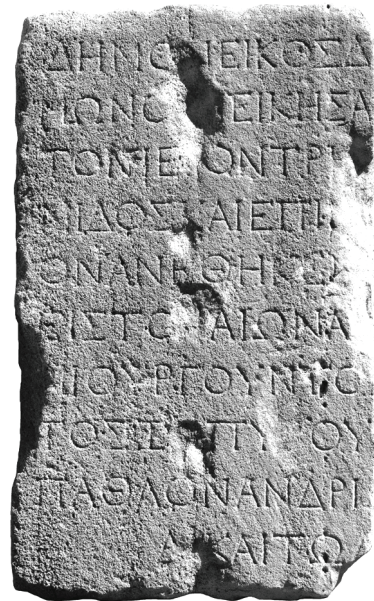 ΔΗΜΟΝΕΙΚΟΣΔ
ΜΩΝΟΣΝΕΙΚΗΣΑ
ΤΟΝΙΕΡΟΝΤΡΙ
ΠΙΔΟΣΚΑΙΕΠΙ
ΩΝΑΝΕΘΗΚΕΝ
ΡΙΣΤΟΝΑΙΩΝΑ
ΜΙΟΥΡΓΟΥΝΤΟ
ΤΟΣΕΥΤΥΧΟΥ
ΠΑΘΛΩΝΑΝΔΡΙ
ΑΣΚΑΙΤΩ